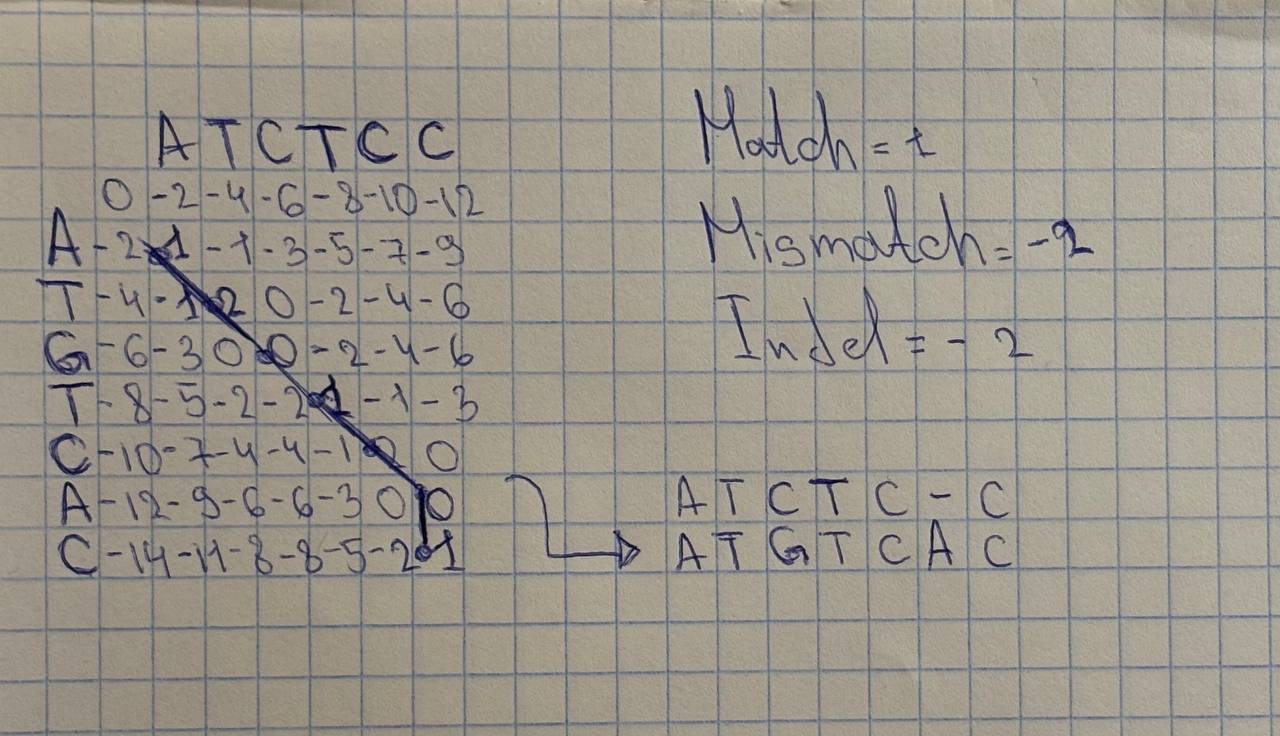 A T C T C C
0 -2 -4 -6 -8 -10 -12
A -2 1 -1 -3 -5 -7 -9
T -4 -1 2 0 -2 -4 -6
G -6 -3 0 0 -2 -4 -6
T -8 -5 -2 -2 1 -1 -3
C -10 -7 -4 -4 -1 2 0
A -12 -9 -6 -6 -3 0 0
C -14 -11 -8 -8 -5 -2 1
Match = 1
Mismatch = -2
Indel = - 2
A T C T C - C
A T G T C A C